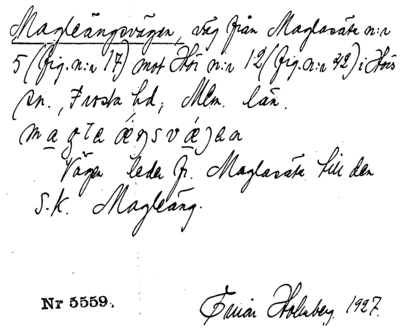 Magleängsvägen, väg från Maglasäte n:r
5 (fig. n:r 17) mot Hör n:r 12 (fig. n:r 32) i Hörs
sn., Frosta hd, Mlm. län.
Vägen leder fr. Maglasäte till den
s.k. Magleäng.
Nr 5559.
Holmberg. 1927.